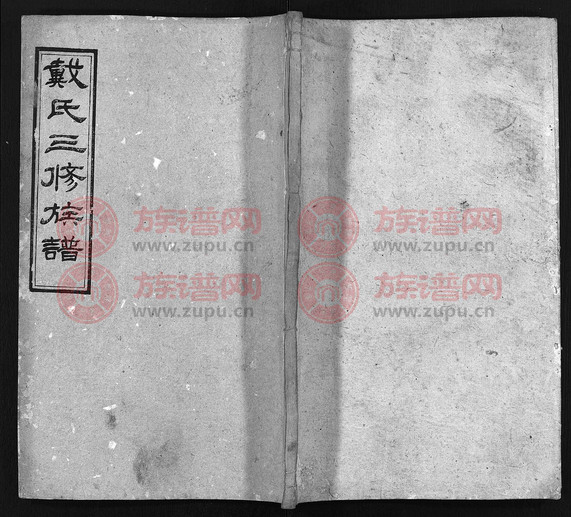 戴氏三修族譜
族谱网
www.zupu.cn
族谱网
www.zupu.cn
族谱网
www.zupu.cn
族谱网
www.zupu.cn